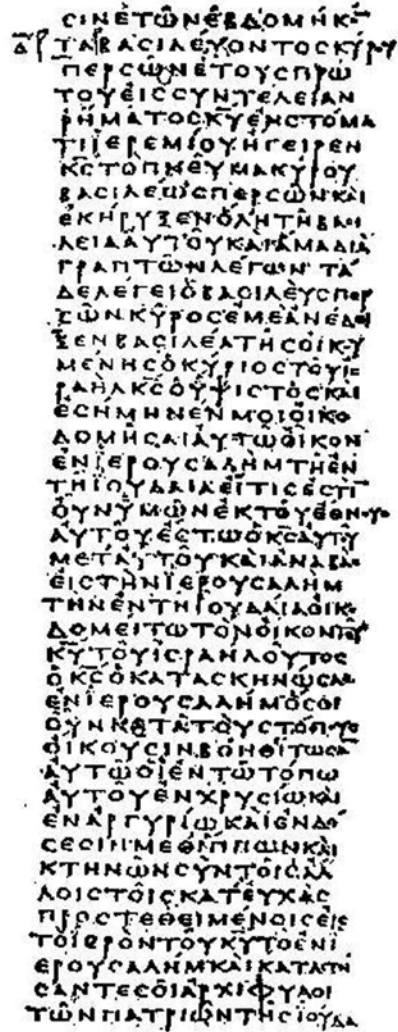 ϹΙΝΕΤΩΝΕΒΔΟΜΗΚΟ̅
Δ ΤΑΒΑϹΙΛΕΥΟΝΤΟϹΚΥΡΟΥ
ΠΕΡϹΩΝΕΤΟΥϹΠΡΩ
ΤΟΥΕΙϹϹΥΝΤΕΛΕΙΑΝ
ΡΗΜΑΤΟϹΚ̅Υ̅ΕΝϹΤΟΜΑ
ΤΙΙΕΡΕΜΙΟΥΗΓΕΙΡΕΝ
Κ̅Ϲ̅ΤΟΠΝΕΥΜΑΚΥΡΟΥ
ΒΑϹΙΛΕΩϹΠΕΡϹΩΝΚΑΙ
ΕΚΗΡΥΞΕΝΟΛΗΤΗΒΑϹΙ
ΛΕΙΑΑΥΤΟΥΚΑΙΑΜΑΔΙΑ
ΓΡΑΠΤΩΝΛΕΓΩΝ ΤΑ
ΔΕΛΕΓΕΙΟΒΑϹΙΛΕΥϹΠΕΡ
ϹΩΝΚΥΡΟϹΕΜΕΑΝΕΔΕΙ
ΞΕΝΒΑϹΙΛΕΑΤΗϹΟΙΚΟΥ
ΜΕΝΗϹΟΚΥΡΙΟϹΤΟΥΙϹ
ΡΑΗΛΚ̅Ϲ̅ΟΥΨΙϹΤΟϹΚΑΙ
ΕϹΗΜΗΝΕΝΜΟΙΟΙΚΟ
ΔΟΜΗϹΑΙΑΥΤΩΟΙΚΟΝ
ΕΝΙΕΡΟΥϹΑΛΗΜΤΗΕΝ
ΤΗΙΟΥΔΑΙΑΕΙΤΙϹΕϹΤΙ̅
ΟΥΝΥΜΩΝΕΚΤΟΥΕΘΝΟΥϹ
ΑΥΤΟΥΕϹΤΩΟΚ̅Ϲ̅ΑΥΤΟΥ
ΜΕΤΑΥΤΟΥΚΑΙΑΝΑΒΑϹ
ΕΙϹΤΗΝΙΕΡΟΥϹΑΛΗΜ
ΤΗΝΕΝΤΗΙΟΥΔΑΙΑΟΙΚΟ
ΔΟΜΕΙΤΩΤΟΝΟΙΚΟΝΤΟΥ
Κ̅Υ̅ΤΟΥΙϹΡΑΗΛΟΥΤΟϹ
ΟΚ̅Ϲ̅ΟΚΑΤΑϹΚΗΝΩϹΑϹ
ΕΝΙΕΡΟΥϹΑΛΗΜΟϹΟΙ
ΟΥΝΚΑΤΑΤΟΥϹΤΟΠΟΥϹ
ΟΙΚΟΥϹΙΝΒΟΗΘΙΤΩϹΑ̅
ΑΥΤΩΟΙΕΝΤΩΤΟΠΩ
ΑΥΤΟΥΕΝΧΡΥϹΙΩΚΑΙ
ΕΝΑΡΓΥΡΙΩΚΑΙΕΝΔΟ
ϹΕϹΙΝΜΕΘΙΠΠΩΝΚΑΙ
ΚΤΗΝΩΝϹΥΝΤΟΙϹΑΛ
ΛΟΙϹΤΟΙϹΚΑΤΕΥΧΑϹ
ΠΡΟϹΤΕΘΕΙΜΕΝΟΙϹΕΙϹ
ΤΟΙΕΡΟΝΤΟΥΚ̅Υ̅ΤΟΕΝΙ
ΕΡΟΥϹΑΛΗΜΚΑΙΚΑΤΑϹΤΗ
ϹΑΝΤΕϹΟΙΑΡΧΙΦΥΛΟΙ
ΤΩΝΠΑΤΡΙΩΝΤΗϹΙΟΥΔΑ